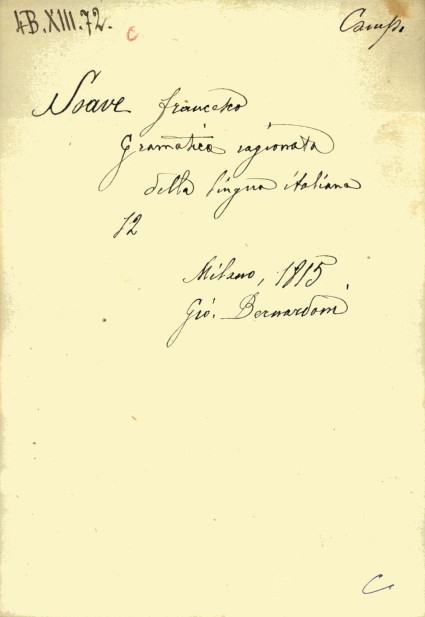 4B.XIII.72. C Camp.
Soave Francesco
Gramatica ragionata
della lingua italiana
12
Milano, 1815
Gio. Bernardoni
C